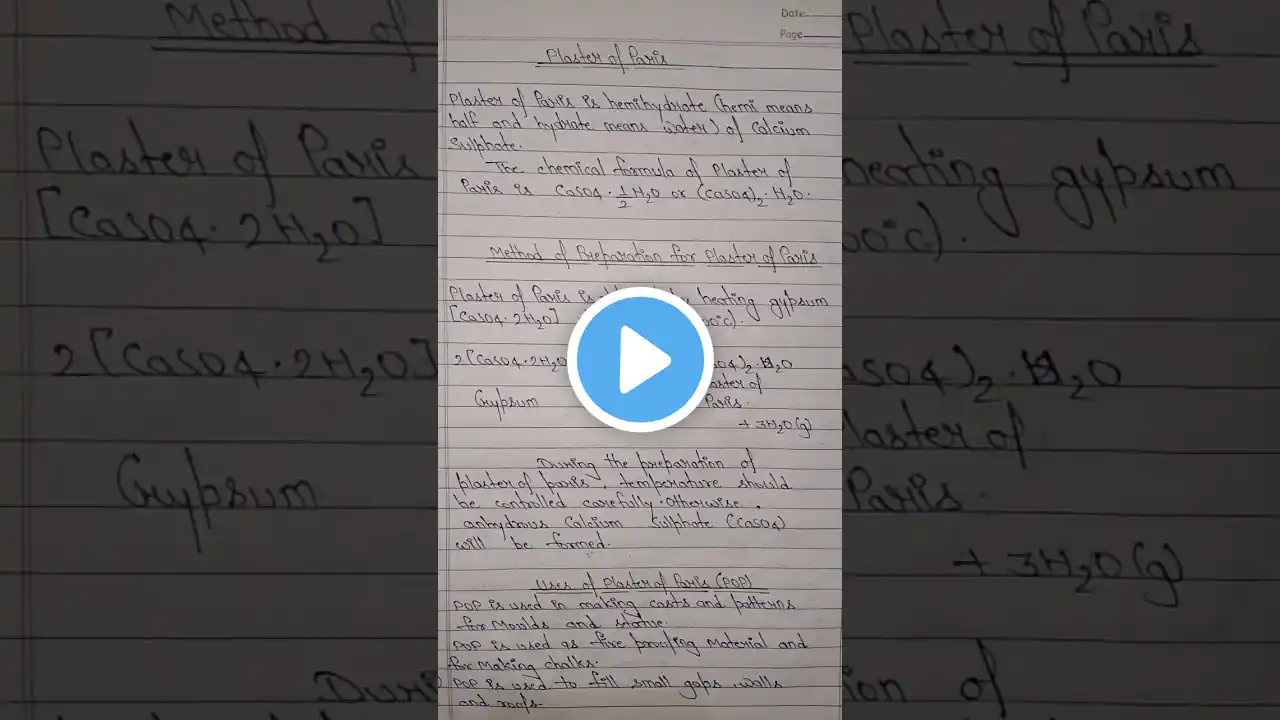 Date
Page
Plaster of Paris
Plaster of Paris is hemihydrate (hemi means
half and hydrate means water) of Calcium
Sulphate.
The chemical formula of Plaster of
Paris is CaSO4 · 1/2 H2O or (CaSO4)2 · H2O.
Method of Preparation for Plaster of Paris
Plaster of Paris is heating gypsum
[CaSO4 · 2H2O] 00°C).
2[CaSO4 · 2H2O SO4)2 · H2O
Gypsum aster of
Paris.
+ 3H2O(g)
During the preparation of
plaster of paris, temperature should
be controlled carefully. Otherwise,
anhydrous Calcium Sulphate (CaSO4)
will be formed.
Uses of Plaster of Paris (POP)
POP is used in making casts and patterns
for Moulds and statue.
POP is used as fire proofing Material and
for Making chalks.
POP is used to fill small gaps walls
and roofs.
Method of
Plaster of Paris
[CaSO4 · 2H2O]
2[CaSO4 · 2H2O]
Gypsum
Duri
Plaster of Paris
heating gypsum
00°C).
aSO4)2 · H2O
laster of
Paris.
+ 3H2O(g)
ion of